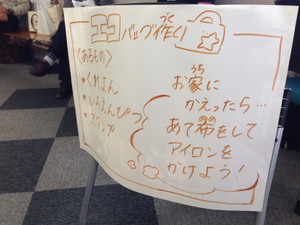 エコバッグ作り
づく
<あるもの>
・くれよん
・いろえんぴつ
・スタンプ
うち
お家に
かえったら…
ぬの
あて布をして
アイロンを
かけよう!